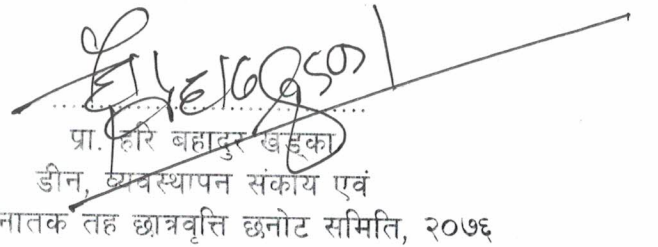 प्रा. हरि बहादुर खड्का
डीन, व्यवस्थापन संकाय एवं
नातक तह छात्रवृत्ति छनोट समिति, २०७६